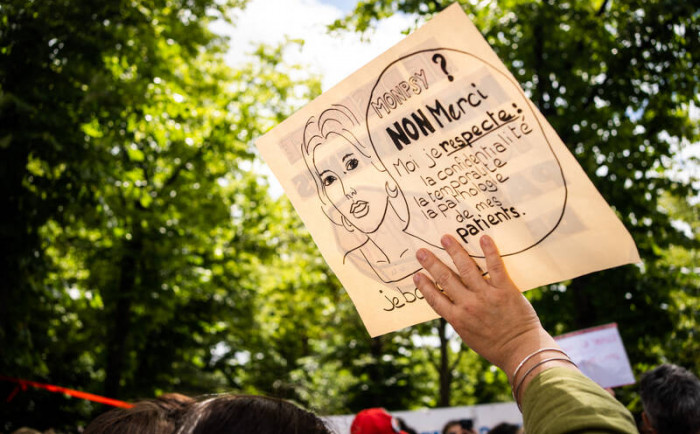 MONPSY ?
NON Merci
Moi je respecte :
la confidentialité
la temporalité
la pathologie
de mes
patients.